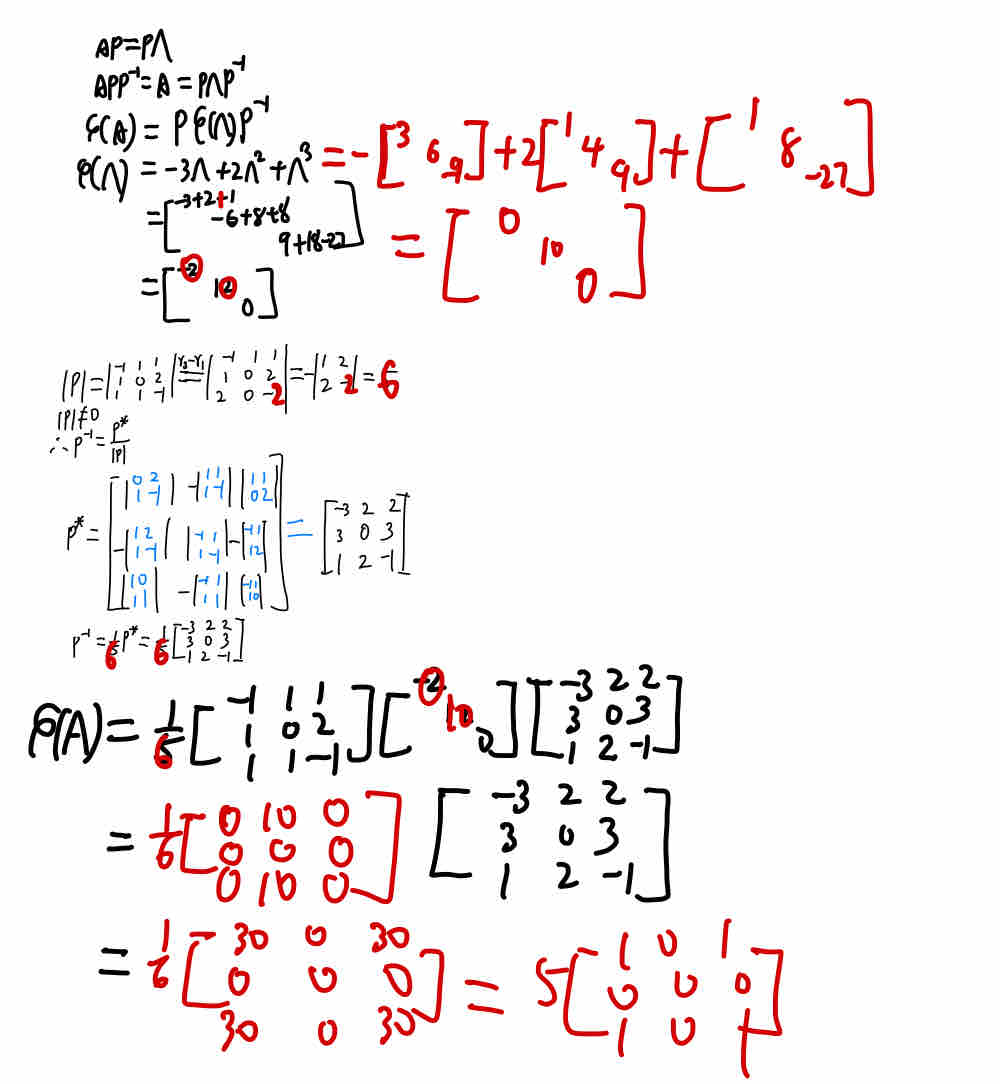 AP=PΛ
APP⁻¹=A=PΛP⁻¹
φ(A)=Pφ(Λ)P⁻¹
φ(Λ)=-3Λ+2Λ²+Λ³=-[3 6 -9]+2[1 4 9]+[1 8 -27]
=[-3+2+1 -6+8+8 9+18-27]
=[0 10 0]
=[0 10 0]
|P|=|-1 1 1; 1 0 2; 1 1 -1| r₃-r₁ = |-1 1 1; 1 0 2; 2 0 -2|=-|1 2; 2 -2|=6
|P|≠0
∴P⁻¹=P*/|P|
P*=[|0 2; 1 -1| -|1 1; 1 -1| |1 1; 0 2|
-|1 2; 1 -1| |-1 1; 1 -1| -|-1 1; 1 2|
|1 0; 1 1| -|-1 1; 1 1| |-1 1; 1 0|]=[-3 2 2; 3 0 3; 1 2 -1]
P⁻¹=1/6 P*=1/6[-3 2 2; 3 0 3; 1 2 -1]
φ(A)=1/6[-1 1 1; 1 0 2; 1 1 -1][0 10 0][-3 2 2; 3 0 3; 1 2 -1]
=1/6[0 10 0; 0 0 0; 0 10 0][-3 2 2; 3 0 3; 1 2 -1]
=1/6[30 0 30; 0 0 0; 30 0 30]=5[1 0 1; 0 0 0; 1 0 1]